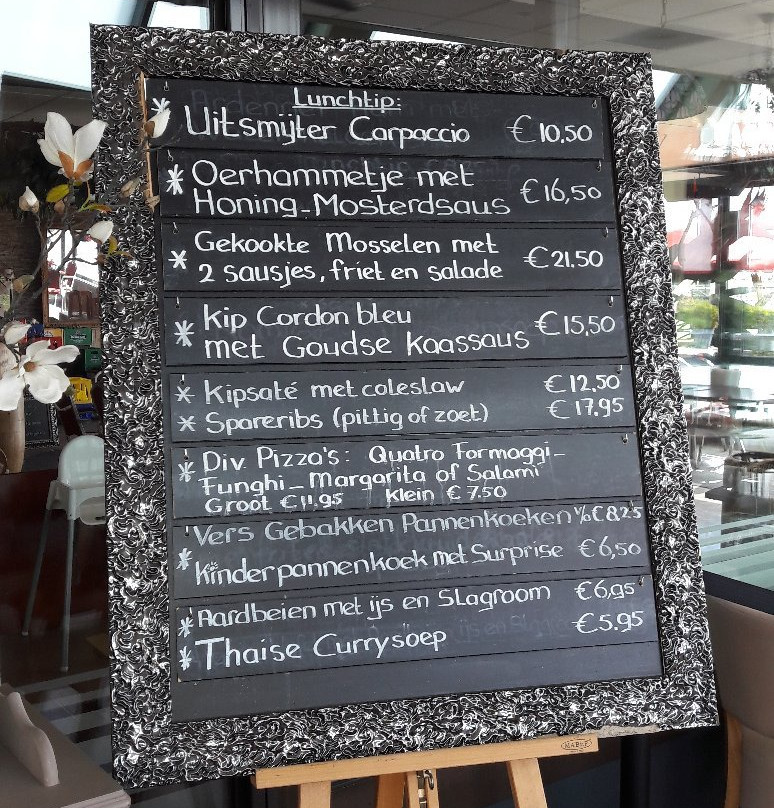 Lunchtip:
* Uitsmijter Carpaccio €10,50
* Oerhammetje met
Honing-Mosterdsaus €16,50
* Gekookte Mosselen met
2 sausjes, friet en salade €21.50
* Kip Cordon bleu
met Goudse kaassaus €15,50
* Kipsaté met coleslaw €12,50
* Spareribs (pittig of zoet) €17,95
* Div. Pizza's: Quatro Formaggi-
Funghi-Margarita of Salami
Groot €11.95 Klein €7.50
Vers Gebakken Pannenkoeken v/a €8,25
* Kinderpannenkoek met Surprise €6,50
* Aardbeien met ijs en Slagroom €6,95
* Thaise Currysoep €5.95